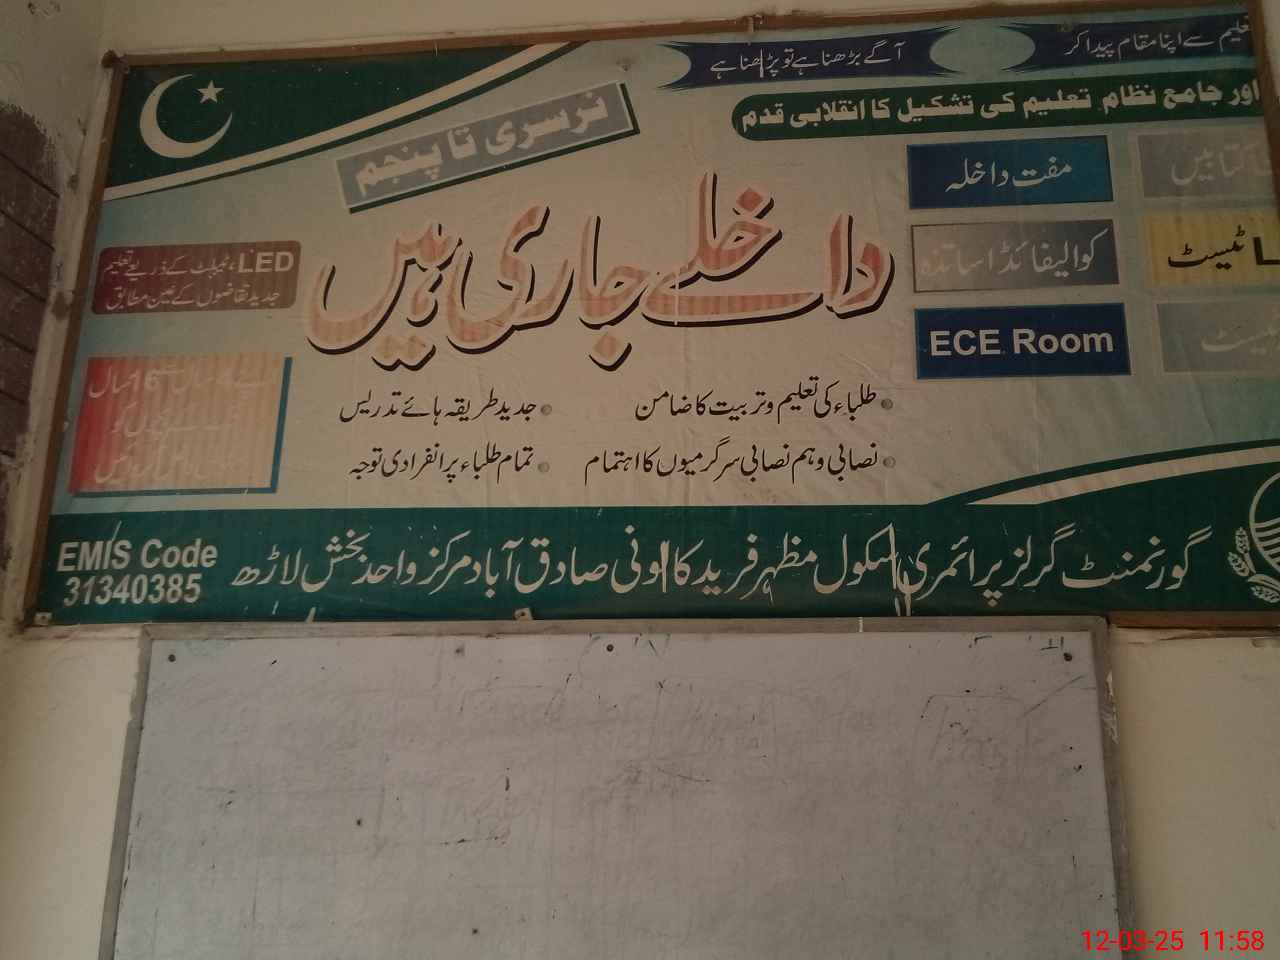 آگے بڑھنا ہے تو پڑھنا ہے
سے اپنا مقام پیدا کر
اور جامع نظام تعلیم کی تشکیل کا انقلابی قدم
نرسری تا پنجم
داخلے جاری ہیں
کتابیں
مفت داخلہ
ٹیسٹ
کوالیفائڈ اساتذہ
ٹیسٹ
ECE Room
LED، ٹیبلٹ کے ذریعے تعلیم
جدید تقاضوں کے عین مطابق
سال
16 سال
کو
طلباء کی تعلیم و تربیت کا ضامن
جدید طریقہ ہائے تدریس
نصابی و ہم نصابی سرگرمیوں کا اہتمام
تمام طلباء پر انفرادی توجہ
گورنمنٹ گرلز پرائمری سکول مظہر فرید کالونی صادق آباد مرکز واحد بخش لاڑھ
EMIS Code
31340385
12-03-25 11:58